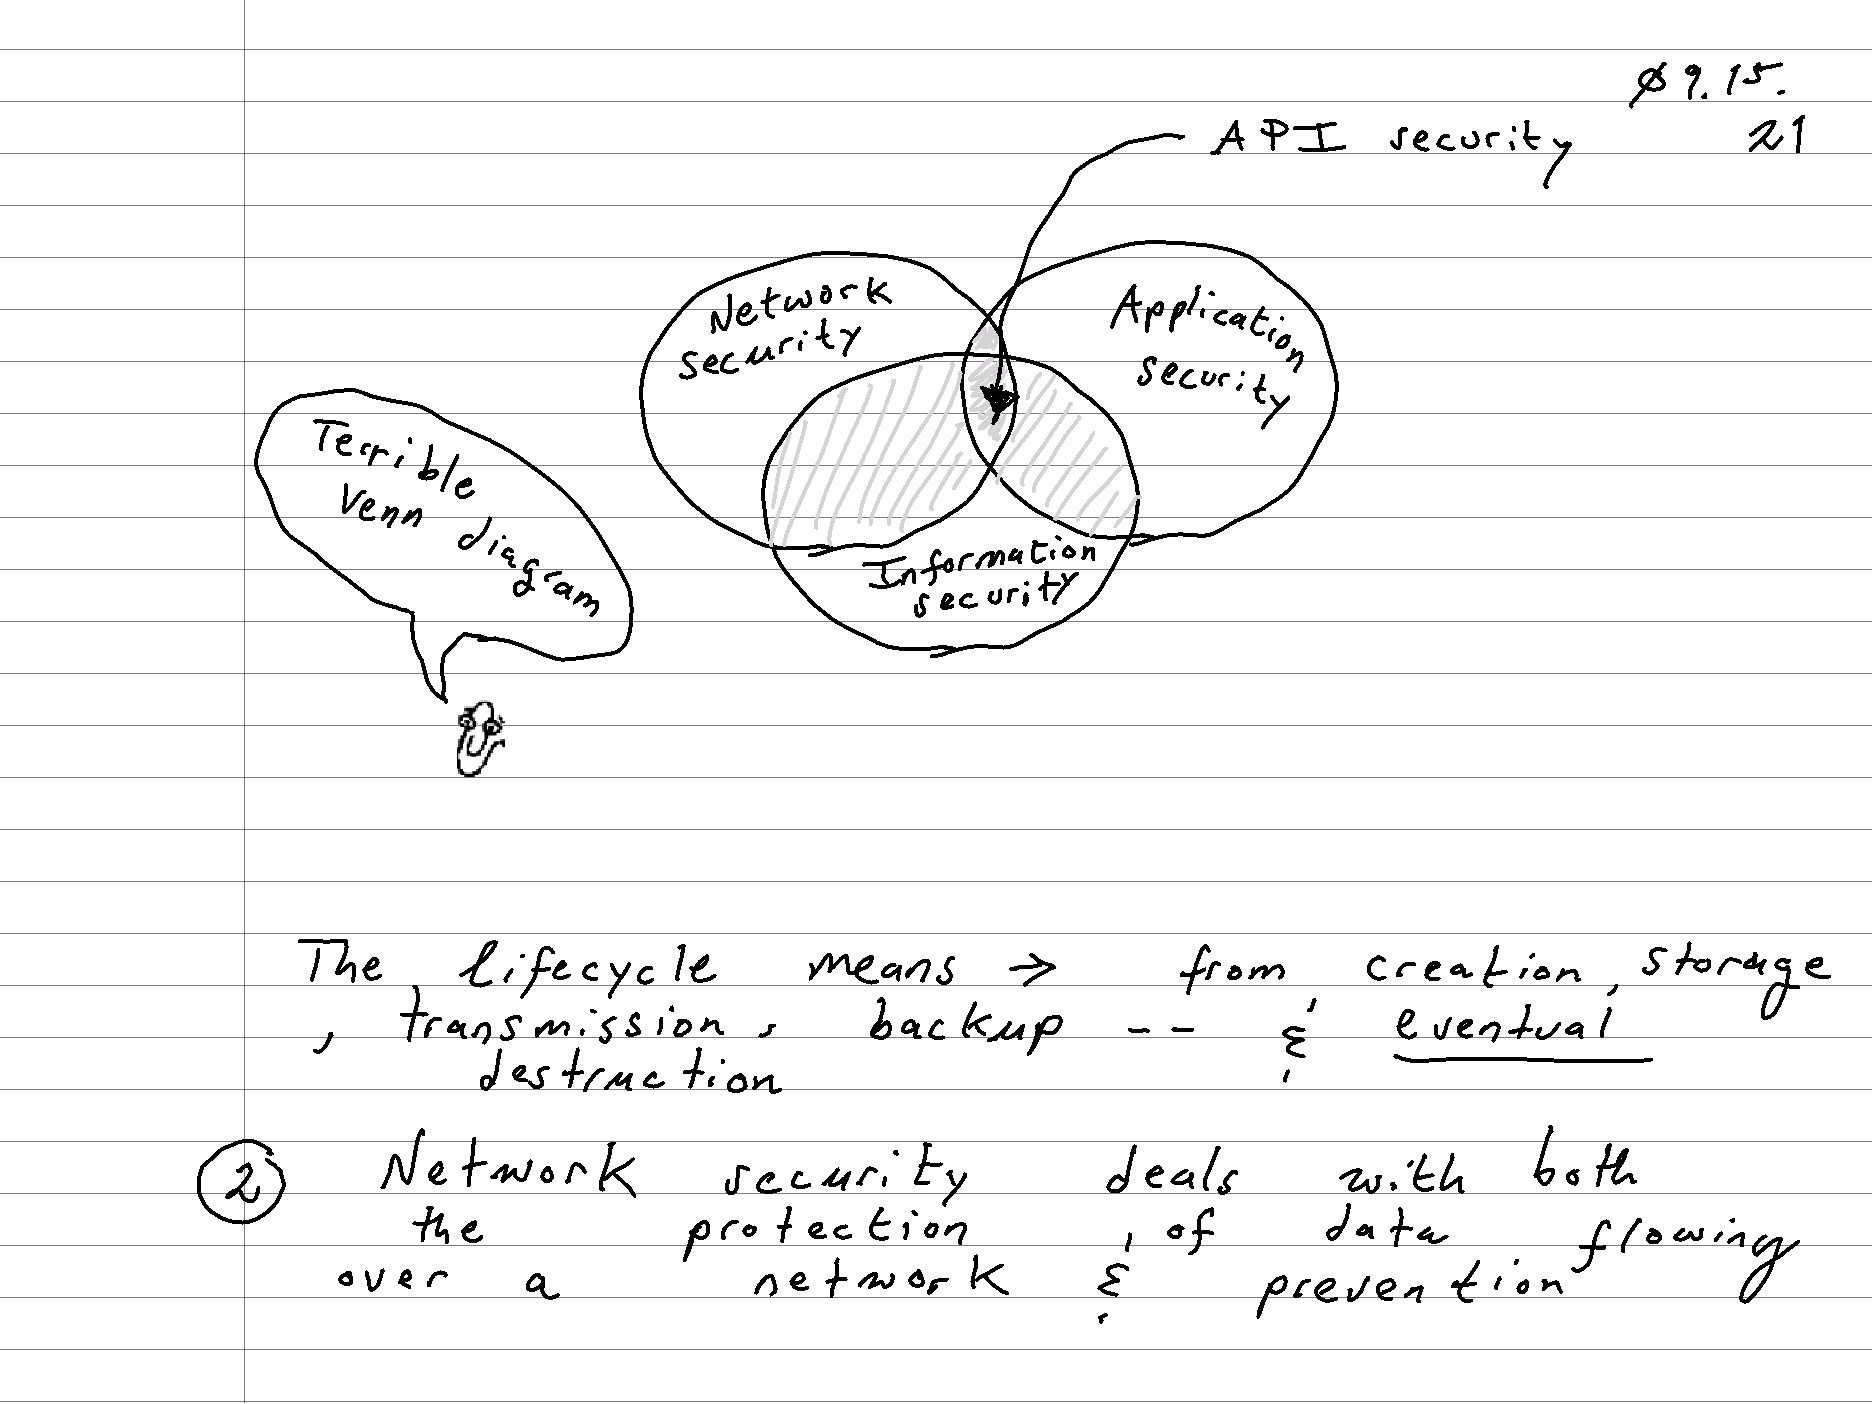 Ø9.15.
21
API security
Network
security
Application
security
Information
security
Terrible
Venn diagram
The lifecycle means → from creation, storage
, transmission, backup -- & eventual
destruction
2 Network security deals with both
the protection of data flowing
over a network & prevention